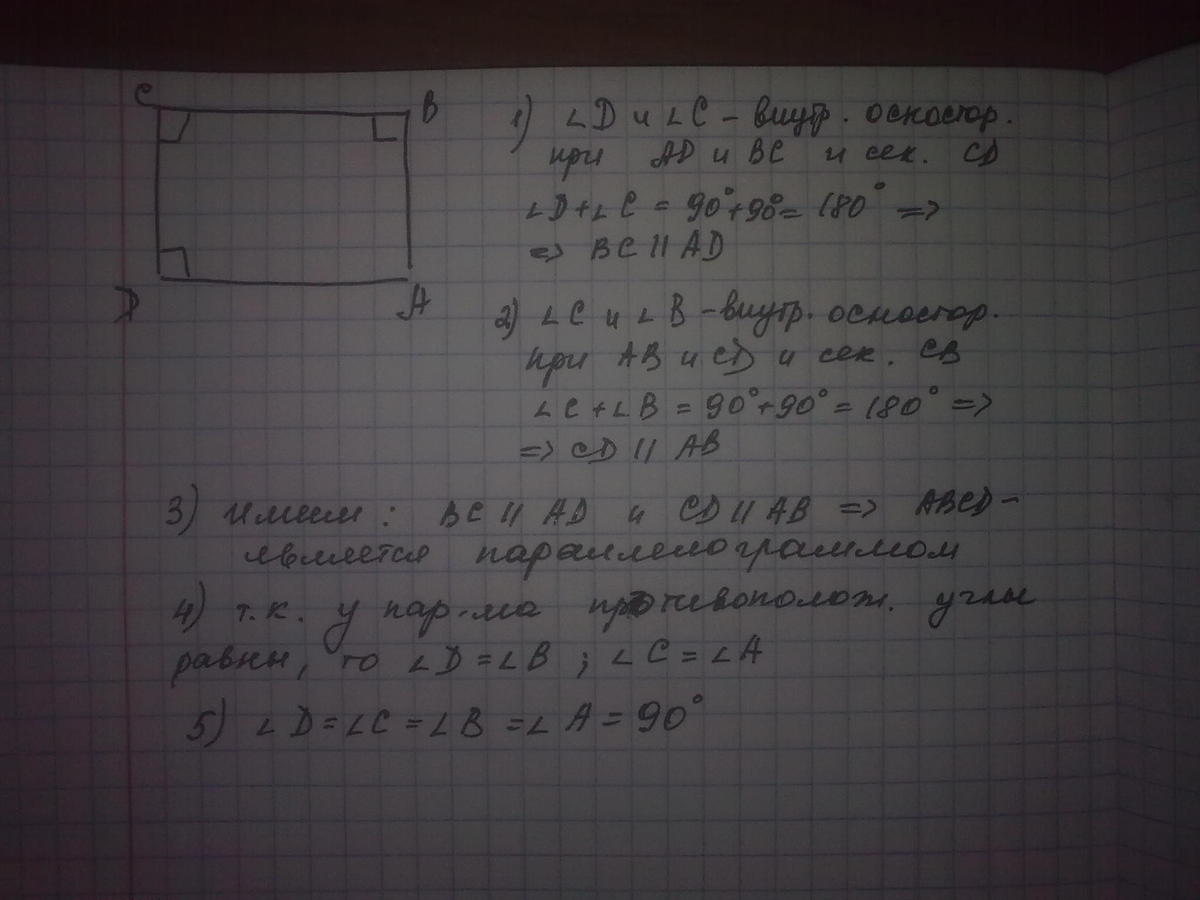 C
B
D
A
1) ∠D и ∠C – внутр. односто​р.
при AD и BC и сек. CD
∠D+∠C = 90°+90°= 180° =>
=> BC || AD
2) ∠C и ∠B – внутр. одностор.
при AB и CD и сек. CB
∠C+∠B = 90°+90° = 180° =>
=> CD || AB
3) Имеем: BC || AD и CD || AB => ABCD –
является параллелограммом
4) т.к. у пар-ма противополож. углы
равны, то ∠D = ∠B ; ∠C = ∠A
5) ∠D = ∠C = ∠B = ∠A = 90°